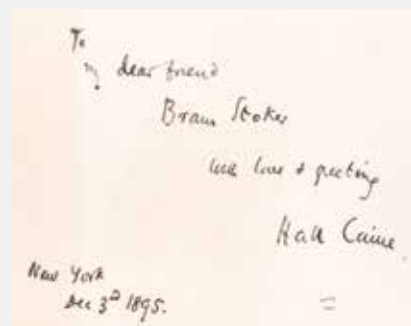 To
my dear friend
Bram Stoker
with love & greeting
Hall Caine.
New York
Dec 3d 1895.